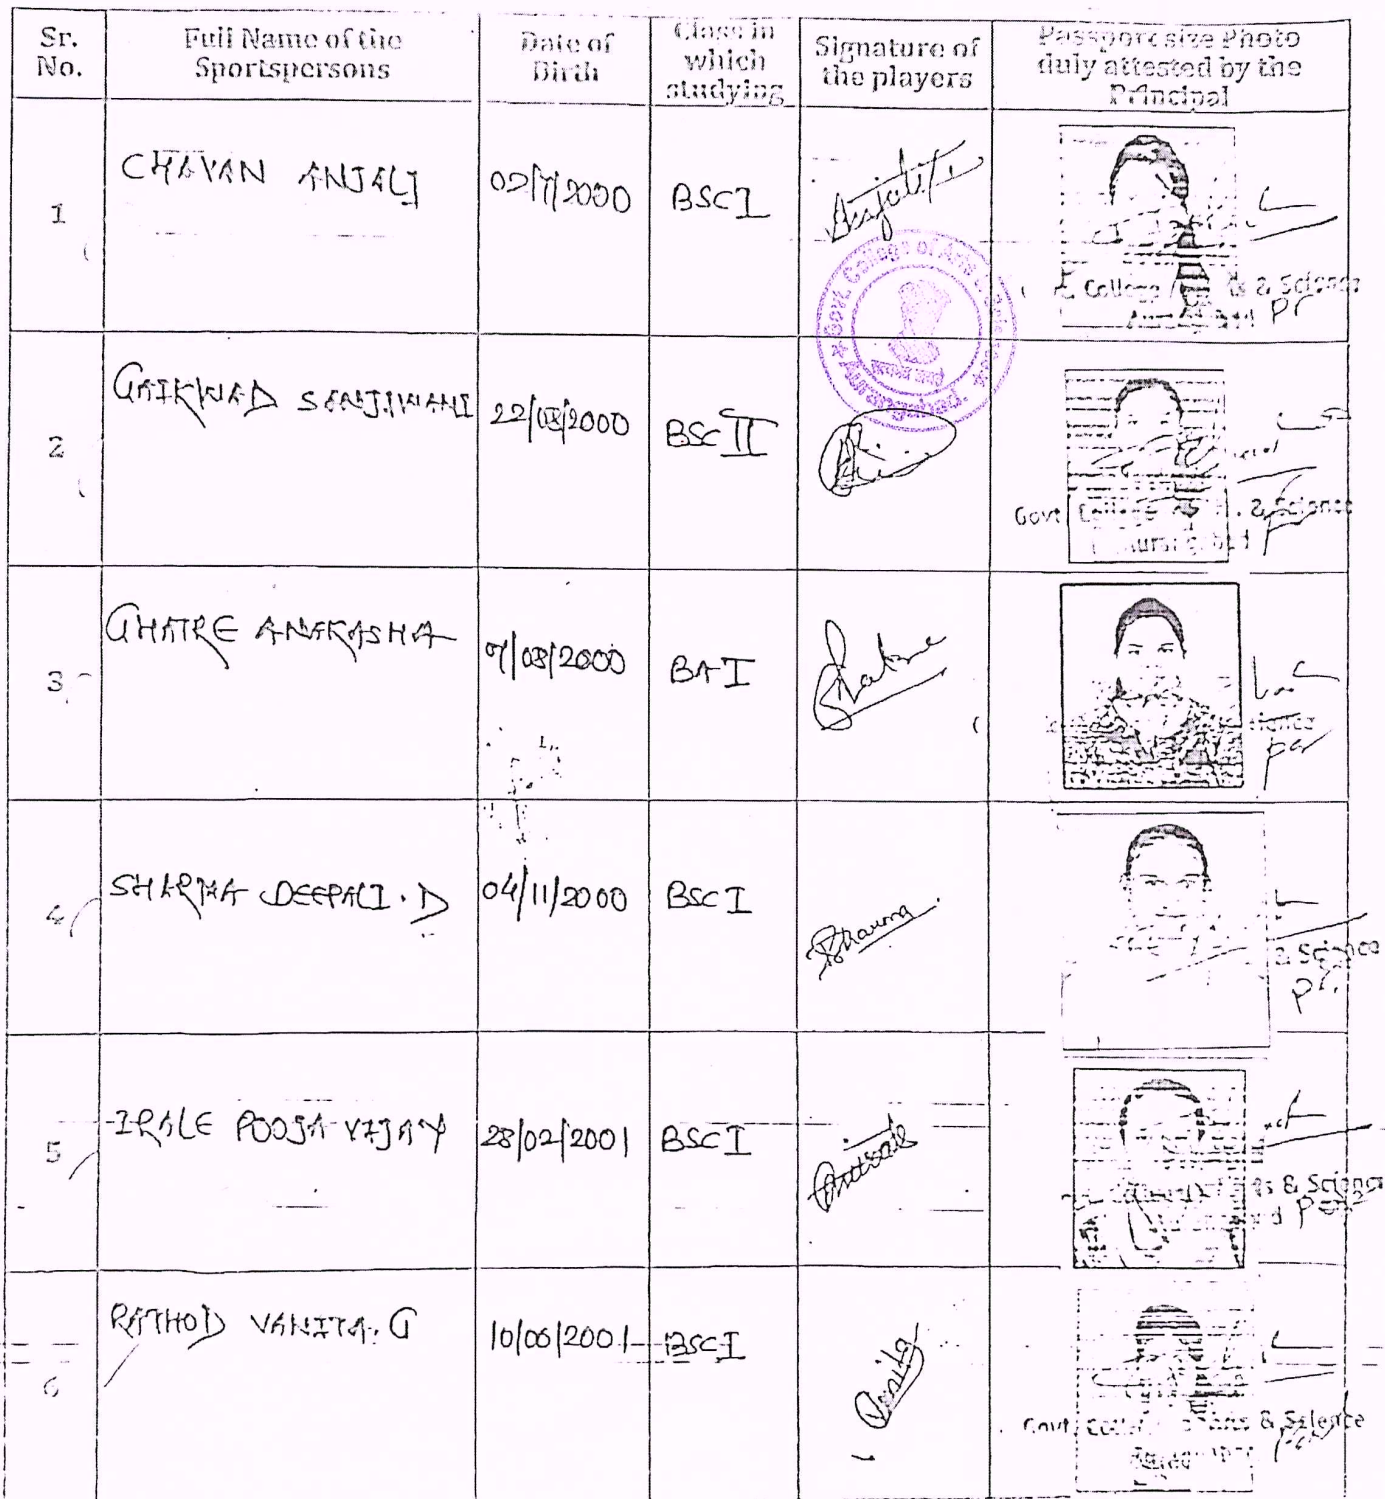 Sr. No.
Full Name of the Sportspersons
Date of Birth
Class in which studying
Signature of the players
Passport size Photo duly attested by the Principal
1
CHAVAN ANJALI
BSC I
Govt. College of Arts & Science
College & Science
2
GAIKWAD SANJIWANI
22/03/2000
BSC II
Govt College & Science
3
GHATRE
BA I
4
SHARMA DEEPALI. D
04/11/2000
BSC I
Sharma
& Science
5
IRALE POOJA VIJAY
28/02/2001
BSC I
& Science
6
RATHOD VANITA. G
BSC I
Vanita
Govt. & Science